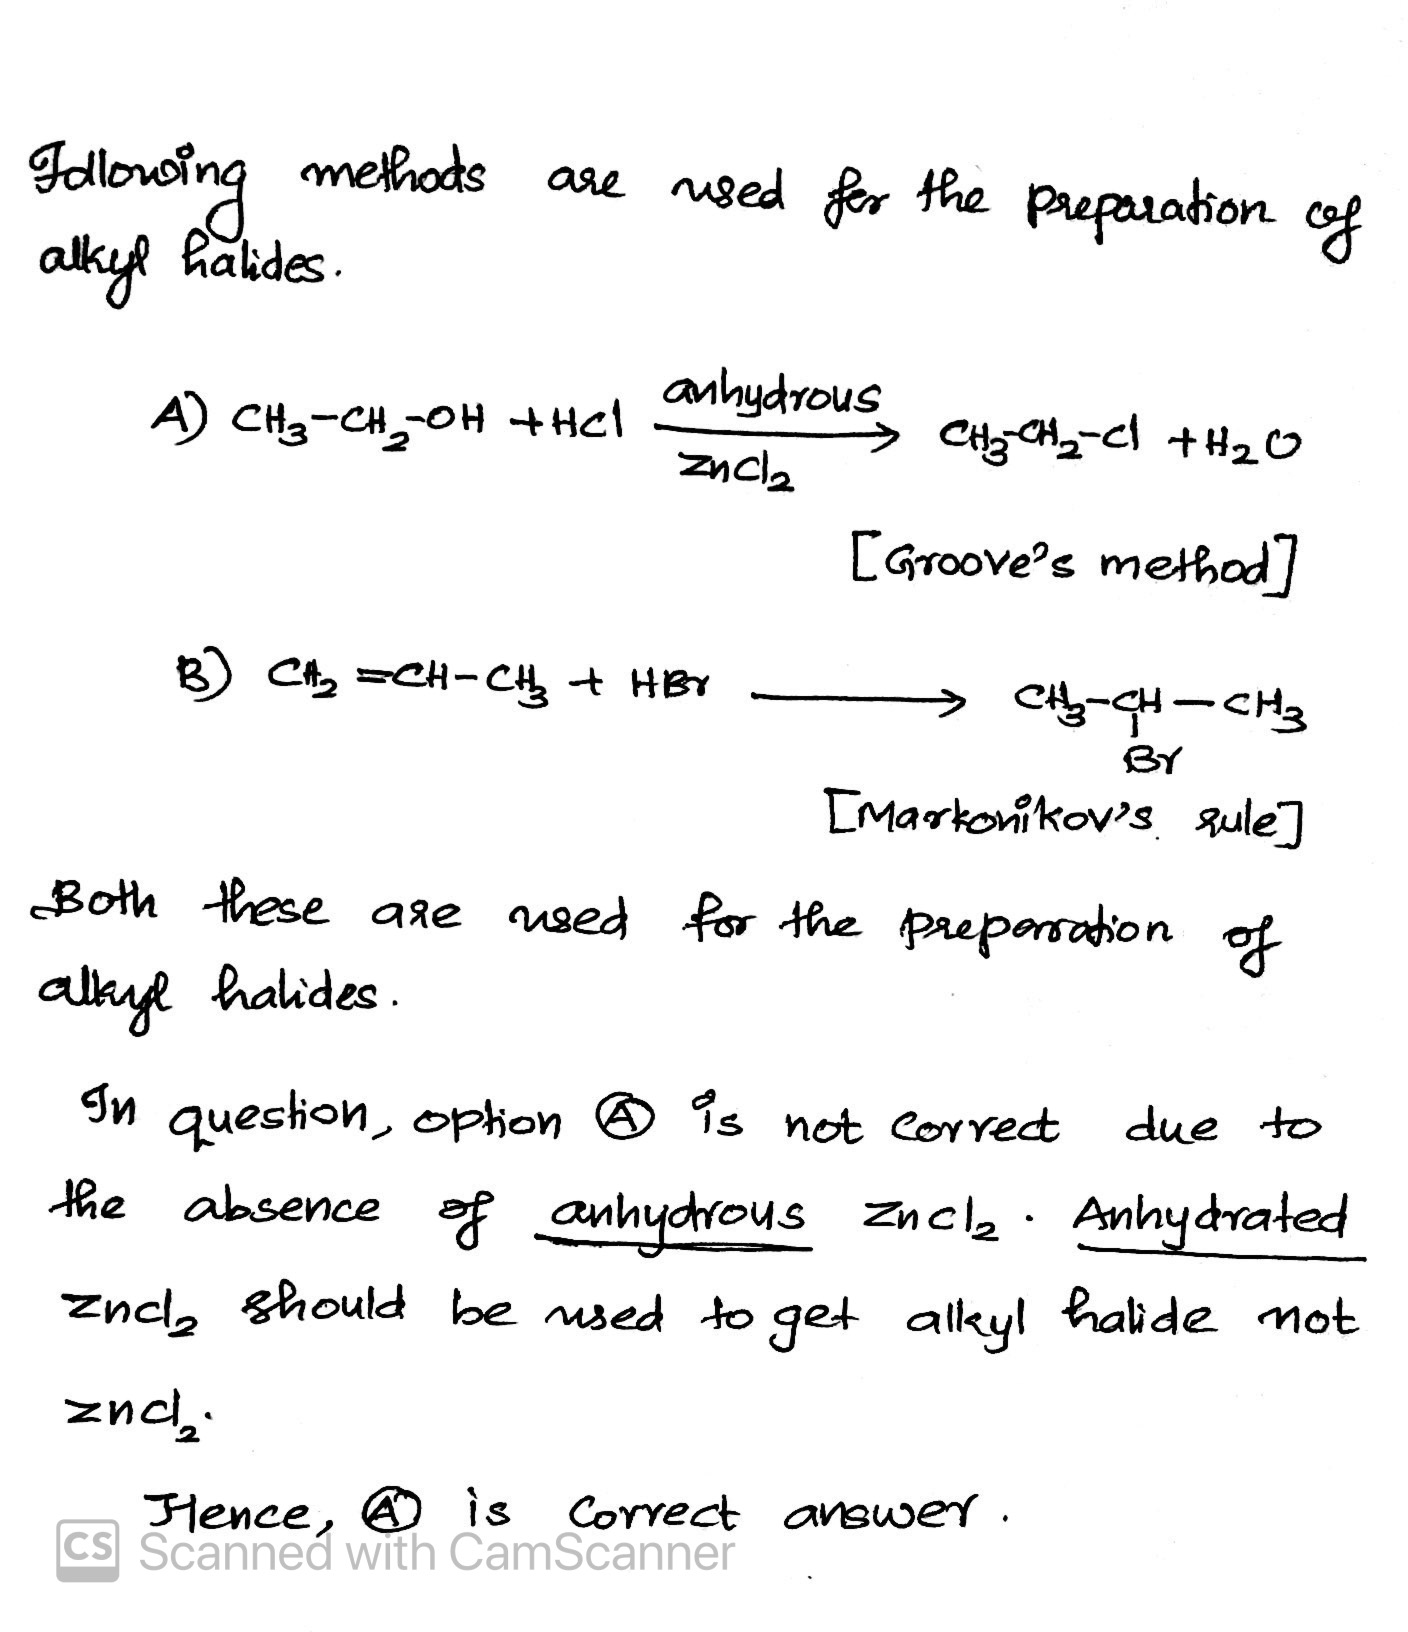 Following methods are used for the preparation of
alkyl halides.
A) CH₃-CH₂-OH + HCl anhydrous → ZnCl₂ CH₃-CH₂-Cl + H₂O
[Groove's method]
B) CH₂=CH-CH₃ + HBr → CH₃-CH-CH₃
Br
[Markonikov's rule]
Both these are used for the preparation of
alkyl halides.
In question, option Ⓐ is not correct due to
the absence of anhydrous ZnCl₂. Anhydrated
ZnCl₂ should be used to get alkyl halide not
ZnCl₂.
Hence, Ⓐ is correct answer.
CS Scanned with CamScanner